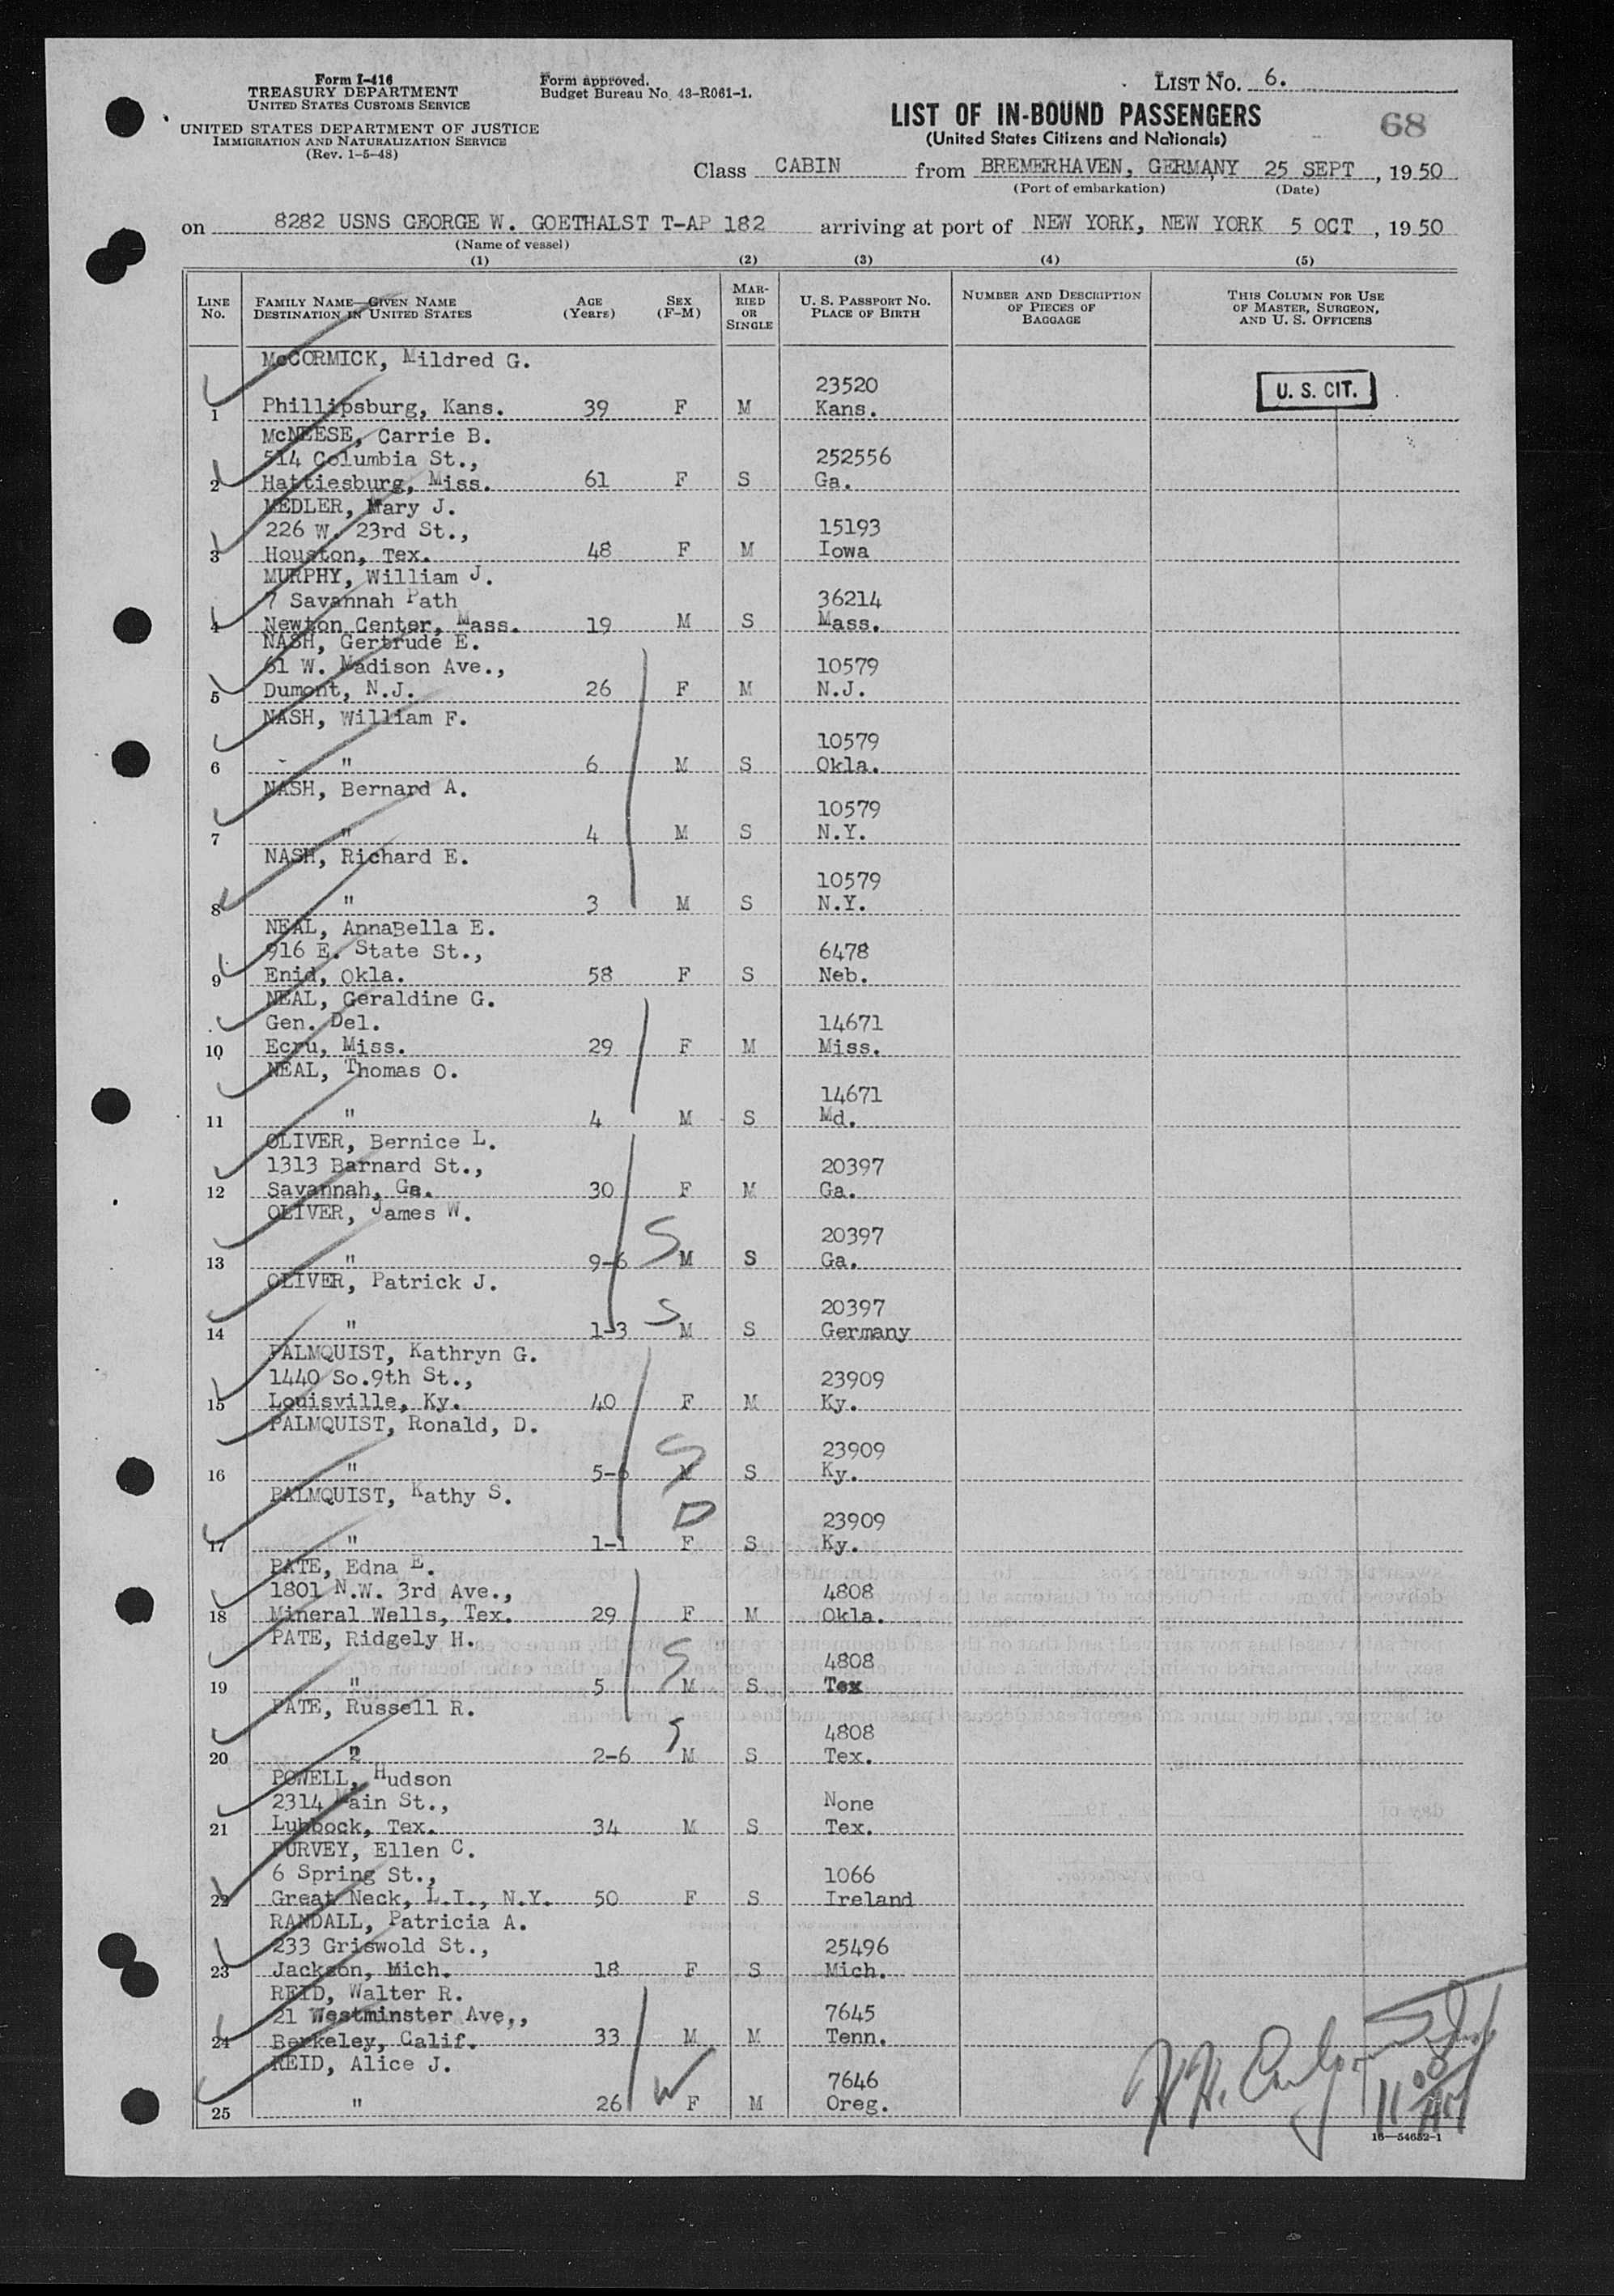 Form I-416
TREASURY DEPARTMENT
UNITED STATES CUSTOMS SERVICE
UNITED STATES DEPARTMENT OF JUSTICE
IMMIGRATION AND NATURALIZATION SERVICE
(Rev. 1-5-48)
Form approved.
Budget Bureau No. 43-R061-1.
LIST NO. 6.
LIST OF IN-BOUND PASSENGERS
(United States Citizens and Nationals)
68
Class CABIN from BREMERHAVEN, GERMANY 25 SEPT, 1950
(Port of embarkation) (Date)
on 8282 USNS GEORGE W. GOETHALST T-AP 182 arriving at port of NEW YORK, NEW YORK 5 OCT, 1950
(Name of vessel)
(1) (2) (3) (4) (5)
LINE No. FAMILY NAME—GIVEN NAME DESTINATION IN UNITED STATES AGE (Years) SEX (F-M) MARRIED OR SINGLE U. S. PASSPORT NO. PLACE OF BIRTH NUMBER AND DESCRIPTION OF PIECES OF BAGGAGE THIS COLUMN FOR USE OF MASTER, SURGEON, AND U. S. OFFICERS
McCORMICK, Mildred G.
23520 U. S. CIT.
1 Phillipsburg, Kans. 39 F M Kans.
McNEESE, Carrie B.
514 Columbia St., 252556
2 Hattiesburg, Miss. 61 F S Ga.
MEDLER, Mary J.
226 W. 23rd St., 15193
3 Houston, Tex. 48 F M Iowa
MURPHY, William J.
7 Savannah Path 36214
4 Newton Center, Mass. 19 M S Mass.
NASH, Gertrude E.
61 W. Madison Ave., 10579
5 Dumont, N.J. 26 F M N.J.
NASH, William F.
10579
6 " 6 M S Okla.
NASH, Bernard A.
10579
7 " 4 M S N.Y.
NASH, Richard E.
10579
8 " 3 M S N.Y.
NEAL, AnnaBella E.
916 E. State St., 6478
9 Enid, Okla. 58 F S Neb.
NEAL, Geraldine G.
Gen. Del. 14671
10 Ecru, Miss. 29 F M Miss.
NEAL, Thomas O.
14671
11 " 4 M S Md.
OLIVER, Bernice L.
1313 Barnard St., 20397
12 Savannah, Ga. 30 F M Ga.
OLIVER, James W.
S 20397
13 " 9-6 M S Ga.
OLIVER, Patrick J.
S 20397
14 " 1-3 M S Germany
PALMQUIST, Kathryn G.
1440 So.9th St., 23909
15 Louisville, Ky. 40 F M Ky.
PALMQUIST, Ronald, D.
S 23909
16 " 5-6 M S Ky.
PALMQUIST, Kathy S.
D 23909
17 " 1-1 F S Ky.
PATE, Edna E.
1801 N.W. 3rd Ave., 4808
18 Mineral Wells, Tex. 29 F M Okla.
PATE, Ridgely H.
S 4808
19 " 5 M S Tex
PATE, Russell R.
S 4808
20 " 2-6 M S Tex.
POWELL, Hudson
2314 Main St., None
21 Lubbock, Tex. 34 M S Tex.
PURVEY, Ellen C.
6 Spring St., 1066
22 Great Neck, L.I., N.Y. 50 F S Ireland
RANDALL, Patricia A.
233 Griswold St., 25496
23 Jackson, Mich. 18 F S Mich.
REID, Walter R.
21 Westminster Ave,, 7645
24 Berkeley, Calif. 33 M M Tenn.
REID, Alice J.
W 7646
25 " 26 F M Oreg.
16—54652-1